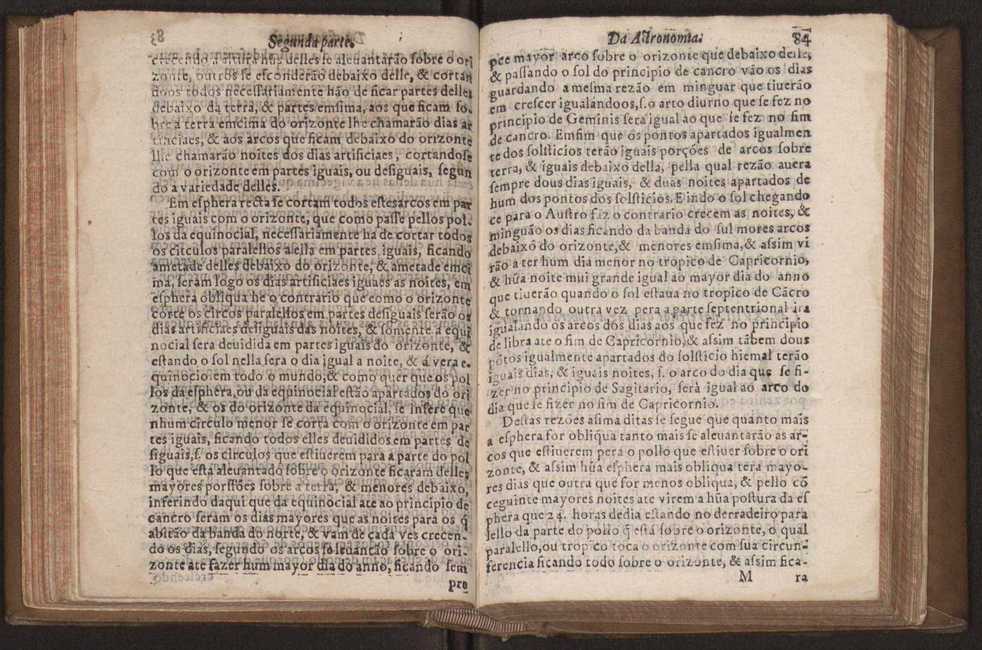 Segunda parte.
crecendo a outro hũs delles se aleuantarão sobre o ori
zonte, outros se esconderão debaixo delle, & cortan
doos todos necessariamente hão de ficar partes delles
debaixo da terra, & partes emsima, aos que ficam so-
bre a terra emcima do orizonte lhe chamarão dias ar
tificiaes, & aos arcos que ficam debaixo do orizonte
lhe chamarão noites dos dias artificiaes, cortandose
com o orizonte em partes iguais, ou desiguais, segun
do a variedade delles.
Em esphera recta se cortam todos estes arcos em par
tes iguais com o orizonte, que como passe pellos pol-
los da equinocial, necessariamente ha de cortar todos
os circulos paralellos a ella em partes iguais, ficando
ametade delles debaixo do orizonte, & ametade emci
ma, seram logo os dias artificiaes iguaes as noites, em
esphera obliqua he o contrario que como o orizonte
corte os circos paralellos em partes desiguais serão os
dias artificiaes desiguais das noites, & somente a equi
nocial sera deuidida em partes iguais do orizonte, &
estando o sol nella sera o dia igual a noite, & á vera e-
quinocio em todo o mundo, & como quer que os pol
los da esphera, ou da equinocial estão apartados do ori
zonte, & os do orizonte da equinocial, se infere que
nhum circulo menor se corta com o orizonte em par
tes iguais, ficando todos elles deuididos em partes de
siguais, s. os circulos que estiuerem para a parte do pol
lo que está aleuantado sobre o orizonte ficaram delles
mayores porssões sobre a terra, & menores debaixo,
inferindo daqui que da equinocial ate ao principio de
cancro seram os dias mayores que as noites para os q̃
abitão da banda do norte, & vam de cada ves crecen-
do os dias, segundo os arcos se leuantão sobre o ori-
zonte ate fazer hum mayor dia do anno, ficando sem
pre
Da Astronomia.
84
pre mayor arco sobre o orizonte que debaixo delle,
& passando o sol do principio de cancro vão os dias
guardando a mesma rezão em minguar que tiuerão
em crescer igualandoos, s. o arto diurno que se fez no
principio de Geminis sera igual ao que se fez no fim
de cancro. Emfim que os pontos apartados igualmen
te dos solsticios terão iguais porções de arcos sobre
terra, & iguais debaixo della, pella qual rezão auera
sempre dous dias iguais, & duas noites apartados de
hum dos pontos dos solsticios. E indo o sol chegando
ce para o Austro faz o contrario crecem as noites, &
minguão os dias ficando da banda do sul mores arcos
debaixo do orizonte, & menores emsima, & assim vi
rão a ter hum dia menor no tropico de Capricornio,
& hũa noite mui grande igual ao mayor dia do anno
que tiuerão quando o sol estaua no tropico de Cãcro
& tornando outra vez pera a parte septentrional ira
igualando os arcos dos dias aos que fez no principio
de libra ate o fim de Capricornio, & assim tãbem dous
põtos igualmente apartados do solsticio hiemal terão
iguais dias, & iguais noites, s. o arco do dia que se fi-
zer no principio de Sagitario, será igual ao arco do
dia que se fizer no fim de Capricornio.
Destas rezões asima ditas se segue que quanto mais
a esphera for obliqua tanto mais se aleuantarão as ar-
cos que estiuerem pera o pollo que estiuer sobre o ori
zonte, & assim hũa esphera mais obliqua tera mayo-
res dias que outra que for menos obliqua, & pello cõ
ceguinte mayores noites ate virem a hũa postura da es
phera que 24. horas de dia estando no derradeiro para
lello da parte do pollo q̃ está sobre o orizonte, o qual
paralello, ou tropico toca o orizonte com sua circun-
ferencia ficando todo sobre o orizonte, & assim fica-
M
ra